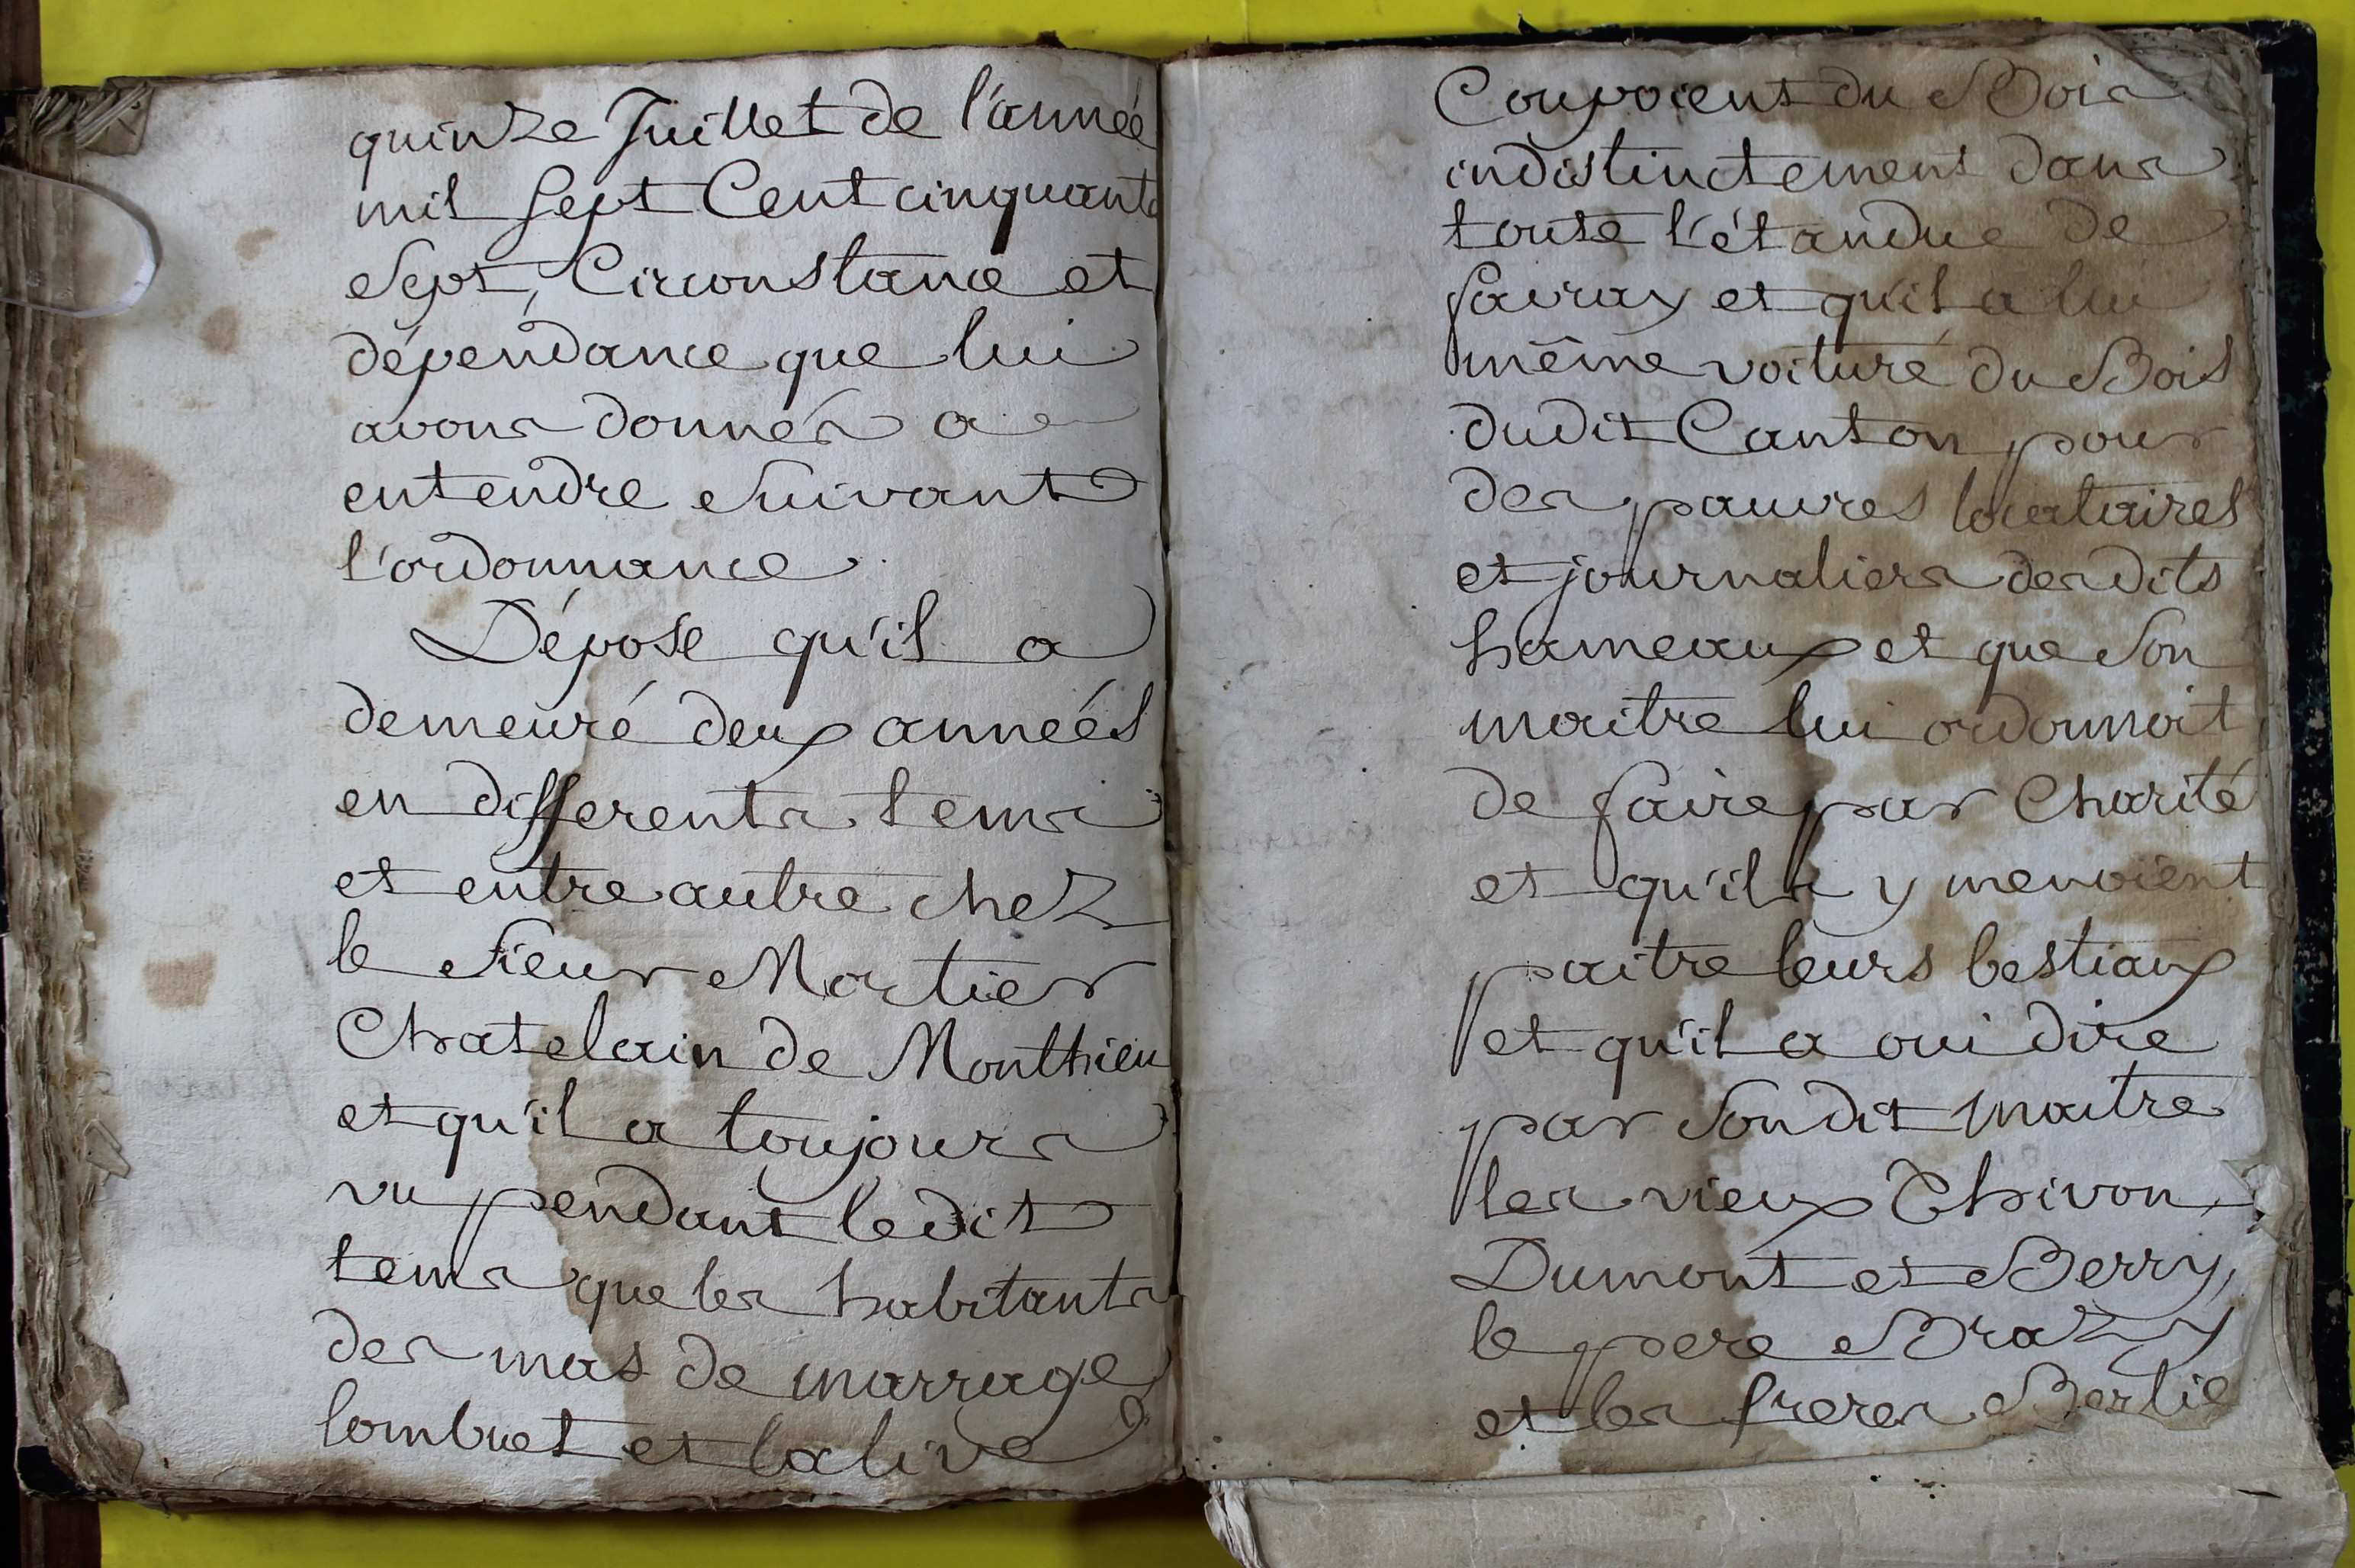 quinze Juillet de l'année
mil sept Cent cinquante
Sept, Circonstance et
dépendance que lui
avons donnés a
entendre Suivant
l'ordonnance
Dépose qu'il a
demeuré deux années
en differents tems
et entre autre chez
le Sieur Mortier
Chatelain de Monthieu
et qu'il a toujours
vu pendant ledit
tems que les habitants
des mas de marrage
lombuet et lalive
Coupoient du Bois
indistinctement dans
toute l'étandue de
fairay et qu'il a lui
même voituré du Bois
dudit Canton pour
des pauvres locataires
et journaliers desdits
hameaux et que Son
maitre lui ordonnoit
de faire par Charité
et qu'ils y menoient
paitre leurs bestiaux
et qu'il a oui dire
par Son dit maitre
les vieux Thivon
Dumont et Berry,
le pere Brazy
et les freres Berlie